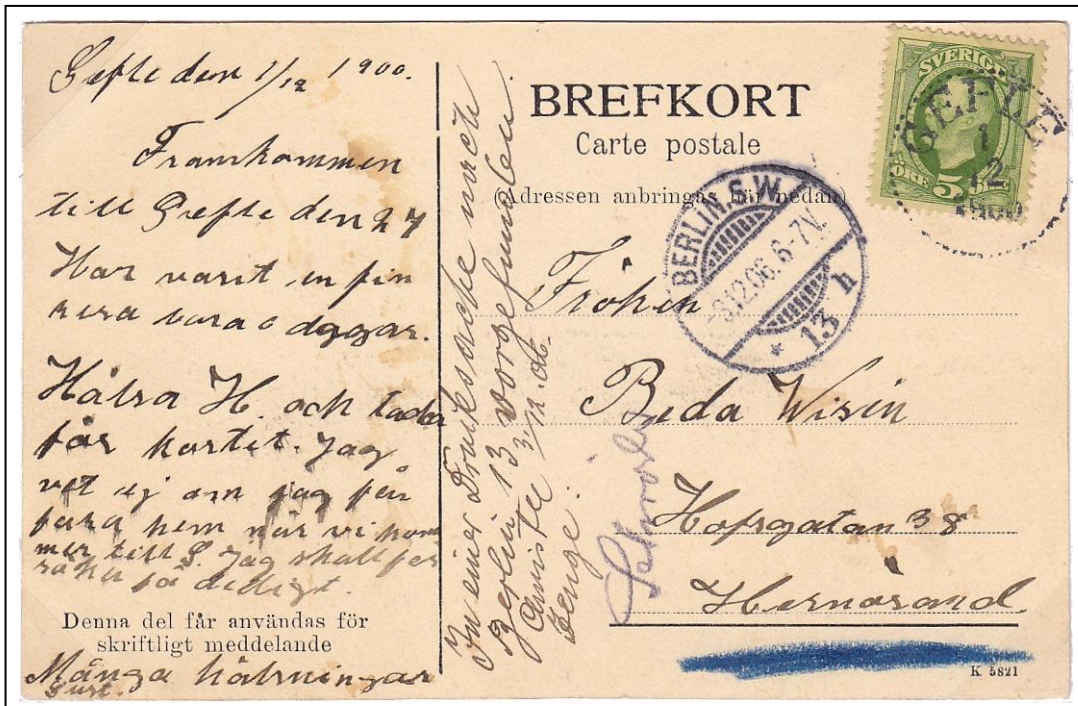 Gefle den 1/12 1900.
Framkommen
till Gefle den 27
Har varit en fin
bara dagar.
Hälsa H. och tacka
för kortet. Jag
vet ej om jag får
fara hem når vi kom
mer till G. Jag skall för
söka få didigt.
Denna del får användas för
skriftligt meddelande
Många hälsningar
Gust.
In einer Drucksache nach
Berlin 13 vorgefunden
3/12. 06.
Zeuge:
BREFKORT
Carte postale
(Adressen anbringas här nedan)
SVERIGE
ÖRE 5
GEFLE
1
12
BERLIN S.W.
-3.12.06. 6-7N.
* 13 h
Fröken
Beda Wisén
Hofsgatan 38
Hernösand
K 5821